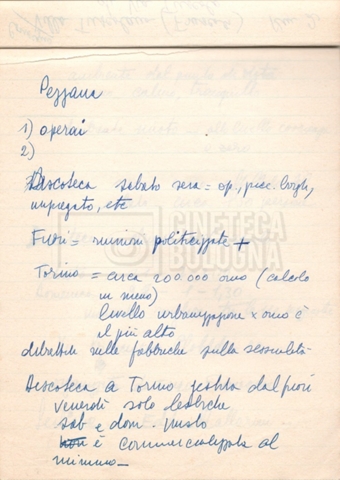 Pezzana
1) operai
2)
Discoteca sabato sera = op., picc. borgh.,
impiegato, etc
Fuori = riunioni politicizzate +
Torino = circa 200.000 omo (calcolo
in meno)
livello urbanizzazione x omo è
il più alto
dibattito sulle fabbriche sulla sessualità
Discoteca a Torino gestita dal fuori
venerdì solo lesbiche
sab e dom. misto
non è commercializzata al
minimo
CINETECA
BOLOGNA